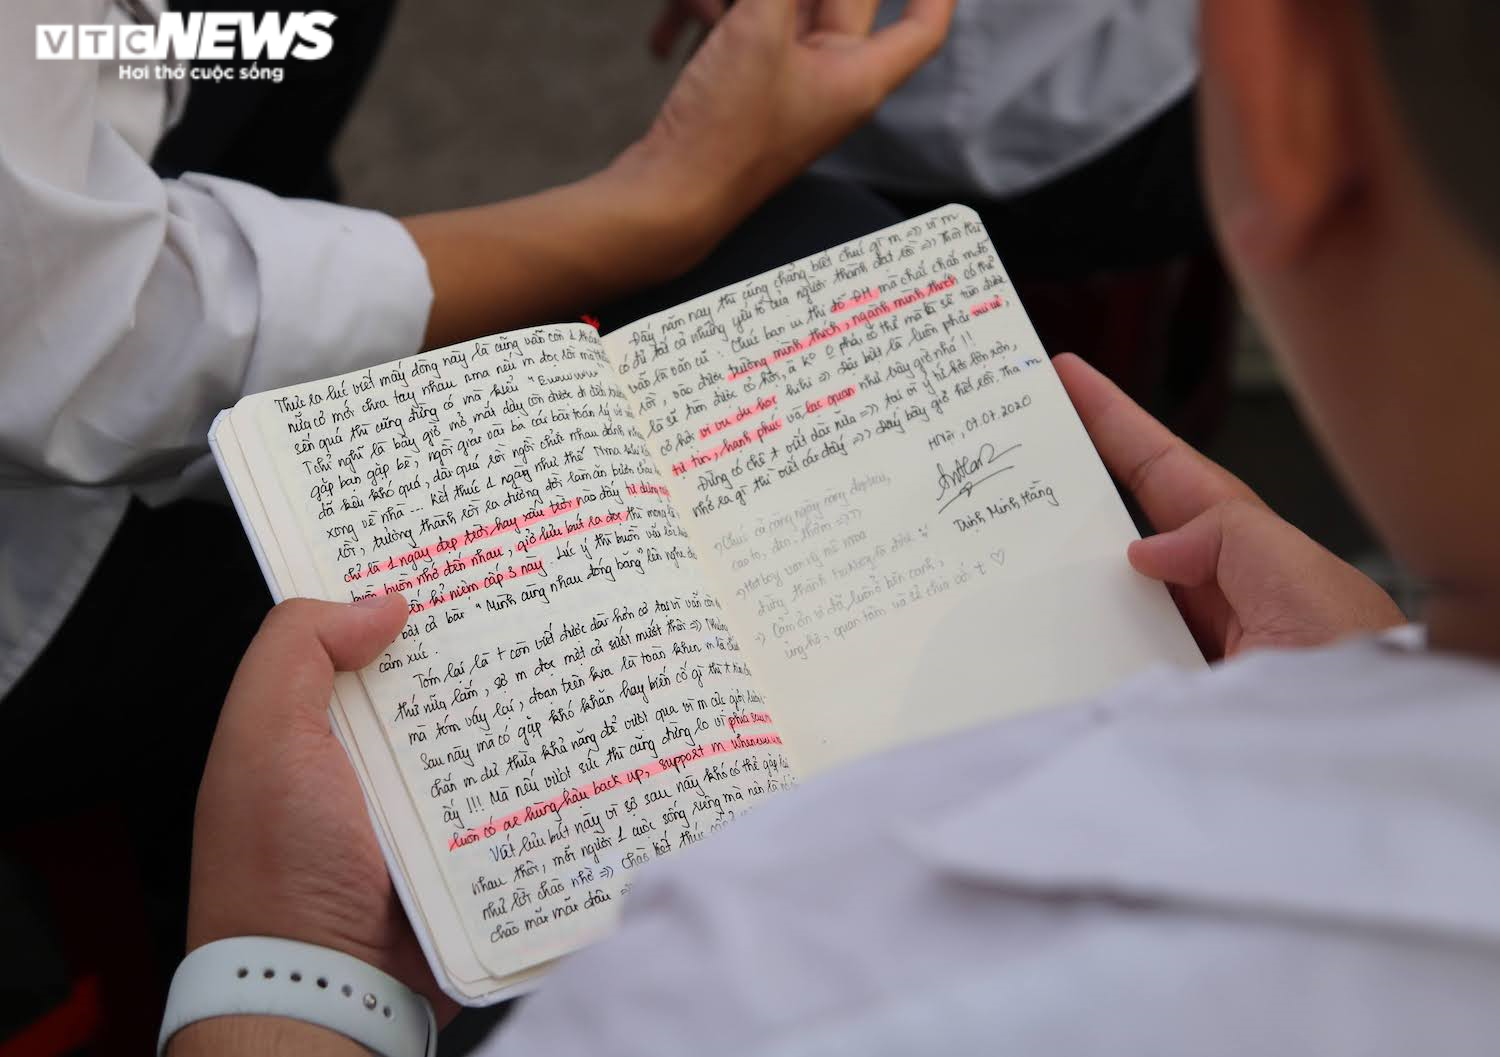 VTC NEWS
Hơi thở cuộc sống
Thực ra lúc viết mấy dòng này là cũng vẫn còn 1
nữa có mới chia tay nhau nma nếu m đọc rồi mà
sến quá thì cũng đừng có mà kiểu "
T chỉ nghĩ là bây giờ mở mắt dậy còn được đi
gặp bạn gặp bè, ngồi giải vài ba cái bài toán, lý
đã kêu khó quá, dài quá rồi ngồi chửi nhau
xong về nhà ... Kết thúc 1 ngày như thế. Nma
rồi, trưởng thành rồi ra đường đời làm ăn
chỉ là 1 ngày đẹp trời hay xấu trời nào đấy tự dưng
buồn buồn nhớ đến nhau, giở lưu bút ra đọc thì mong là
kỉ niệm cấp 3 này. Lúc ý thì buồn vãi
bật cả bài "Mình cùng nhau đóng băng" lên nghe
cảm xúc.
Tóm lại là t còn viết được dài hơn cơ tại vì vẫn còn
thứ nữa lắm, sợ m đọc một cả sướt mướt thôi =>
mà tóm váy lại, đoạn trên kia là toàn khen m là
Sau này mà có gặp khó khăn hay biến cố gì thì t
chắn m dư thừa khả năng để vượt qua vì m
ấy !!! Mà nếu vượt sức thì cũng đừng lo vì phía sau
luôn có ae hùng hậu back up, support m whenever
Viết lưu bút này vì sợ sau này khó có thể gặp lại
nhau thôi, mỗi người 1 cuộc sống riêng mà nên là
như lời chào nhỏ => chào kết thúc
chào mãi mãi đâu =>
Đấy năm nay thì cũng chẳng biết chúc gì m => vì m
có đủ tất cả những yếu tố của người thành đạt rồi => Thôi thì
vẫn là văn cũ : Chúc bạn iu thi đỗ ĐH mà chắc chắn m đỗ
rồi, vào được trường mình thích, ngành mình thích có thể
là sẽ tìm được cơ hội, à ko phải có thể mà là sẽ tìm được
cơ hội vi vu du học hihi => bài bút là luôn phải vui vẻ,
tự tin, hạnh phúc và lạc quan như bây giờ nha !!
Đừng có chê t viết dài nữa => tại vì ý tứ hơi lộn xộn,
nhớ ra gì thì viết cái đấyý => dạy bây giờ hết rồi. Tha m
HNội, 07.07.2020
Trịnh Minh Hằng
→ Chúc cả càng ngày càng đẹp trai,
cao to, đen, thơm =>
→ Hotboy
đừng thành fuckboy là được
→ Cảm ơn vì đã luôn ở bên cạnh,
ủng hộ, quan tâm và sẻ chia với t ♡